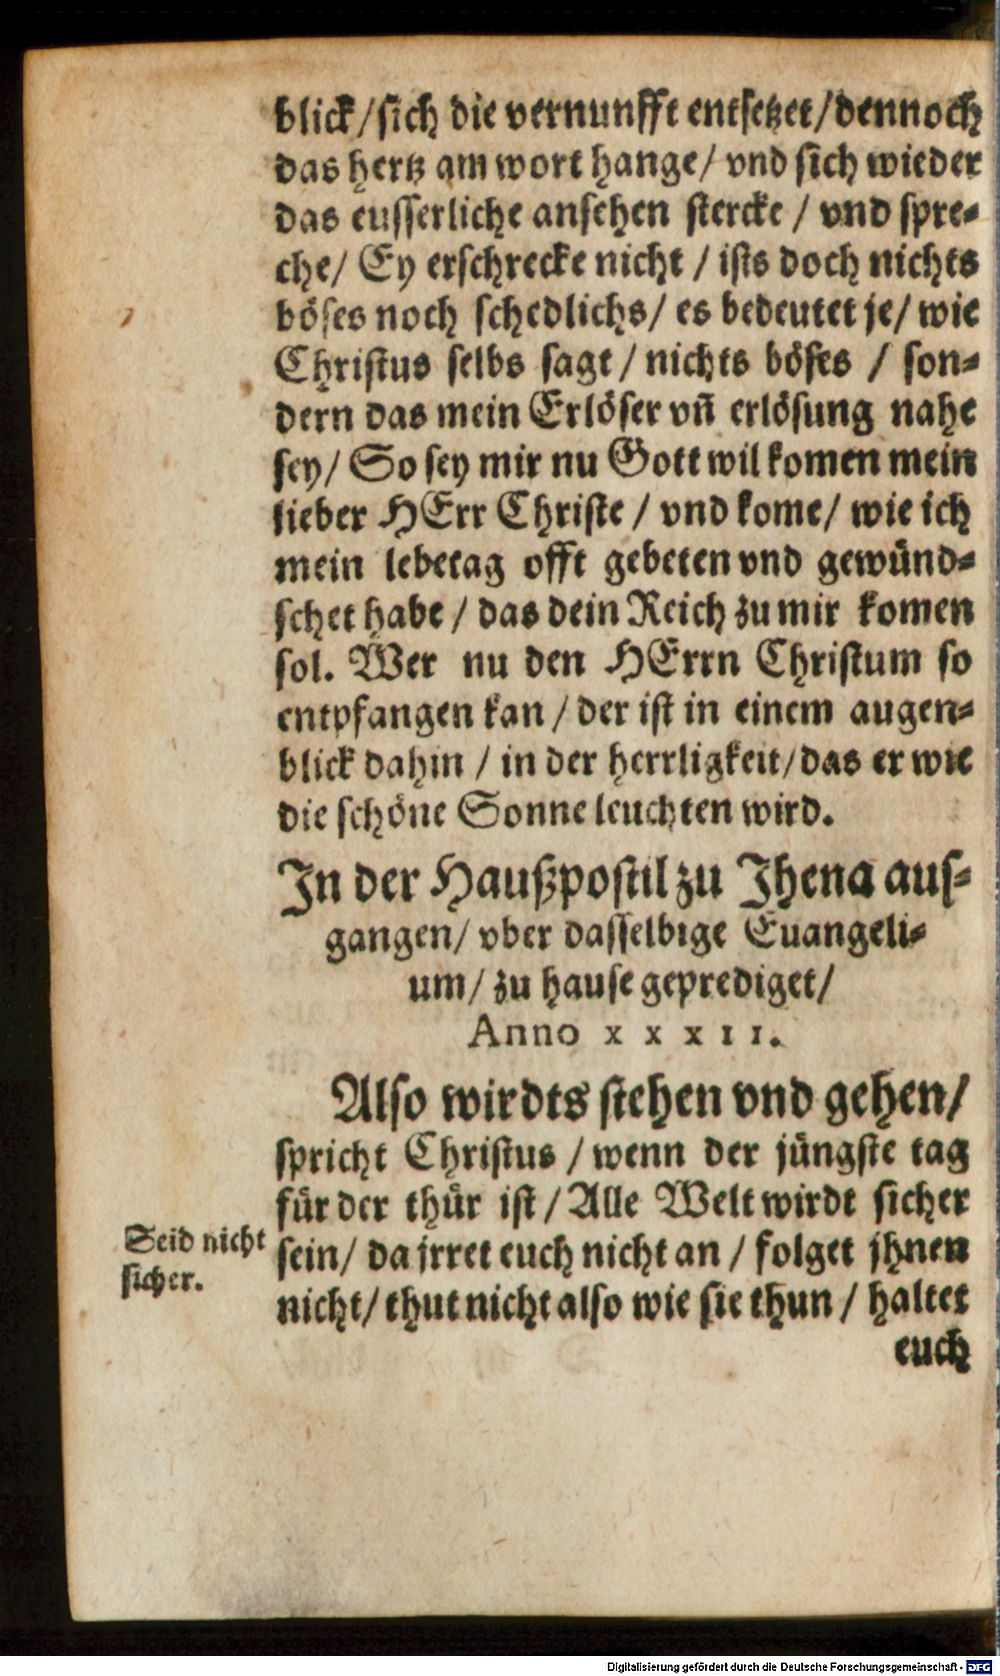 blick/sich die vernunfft entsetzet/dennoch
das hertz am wort hange/ vnd sich wieder
das eusserliche ansehen stercke / vnd spre-
che/ Ey erschrecke nicht / ists doch nichts
böses noch schedlichs/ es bedeutet je/ wie
Christus selbs sagt / nichts böses / son-
dern das mein Erlöser vñ erlösung nahe
sey/ So sey mir nu Gott wilkomen mein
lieber HErr Christe / vnd kome/ wie ich
mein lebetag offt gebeten vnd gewünd-
schet habe / das dein Reich zu mir komen
sol. Wer nu den HErrn Christum so
entpfangen kan / der ist in einem augen-
blick dahin / in der herrligkeit/das er wie
die schöne Sonne leuchten wird.
In der Haußpostil zu Jhena aus-
gangen/ vber dasselbige Euangeli-
um/ zu hause geprediget/
Anno x x x i i.
Also wirdts stehen vnd gehen/
spricht Christus / wenn der jüngste tag
für der thür ist / Alle Welt wirdt sicher
Seid nicht
sicher.
sein/ da jrret euch nicht an / folget jhnen
nicht/ thut nicht also wie sie thun / haltet
euch
Digitalisierung gefördert durch die Deutsche Forschungsgemeinschaft - DFG